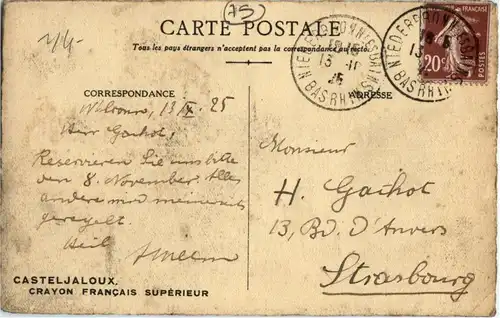 75
44-
CARTE POSTALE
Tous les pays étrangers n'acceptent pas la correspondance au recto.
NIEDERBRONN LES BAINS
13-11
25
BAS RHIN
NIEDERBRONN LES BAINS
13
BAS RHIN
FRANÇAISE
20c
POSTES
CORRESPONDANCE
ADRESSE
13 X. 25
Herr Gachot,
Reservieren Sie uns bitte
den 8. November. Alles
andere wird meinerseits
geregelt.
Heil
Monsieur
H. Gachot
13, Bd. D'Anvers
Strasbourg
CASTELJALOUX.
CRAYON FRANÇAIS SUPÉRIEUR